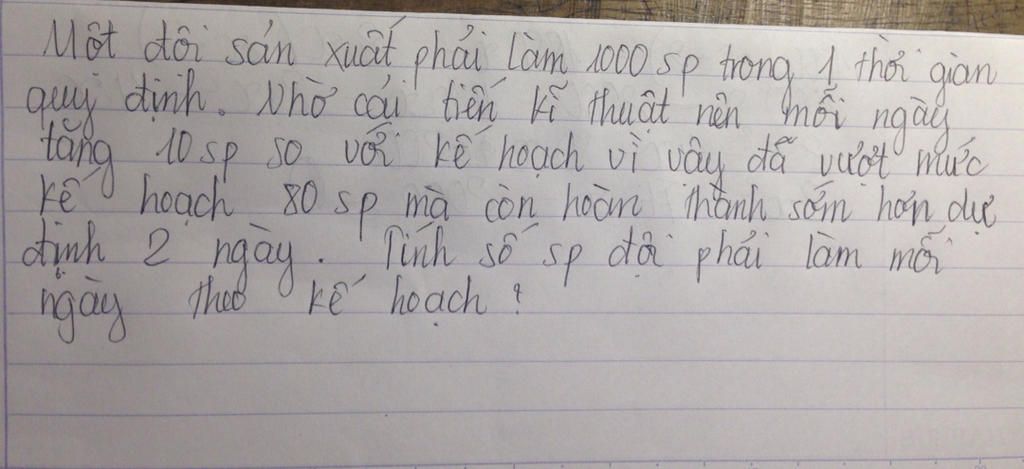 Một đội sản xuất phải làm 1000 sp trong 1 thời gian
quy định. Nhờ cải tiến kĩ thuật nên mỗi ngày
tăng 10 sp so với kế hoạch vì vậy đã vượt mức
kế hoạch 80 sp mà còn hoàn thành sớm hơn dự
định 2 ngày. Tính số sp đội phải làm mỗi
ngày theo kế hoạch?